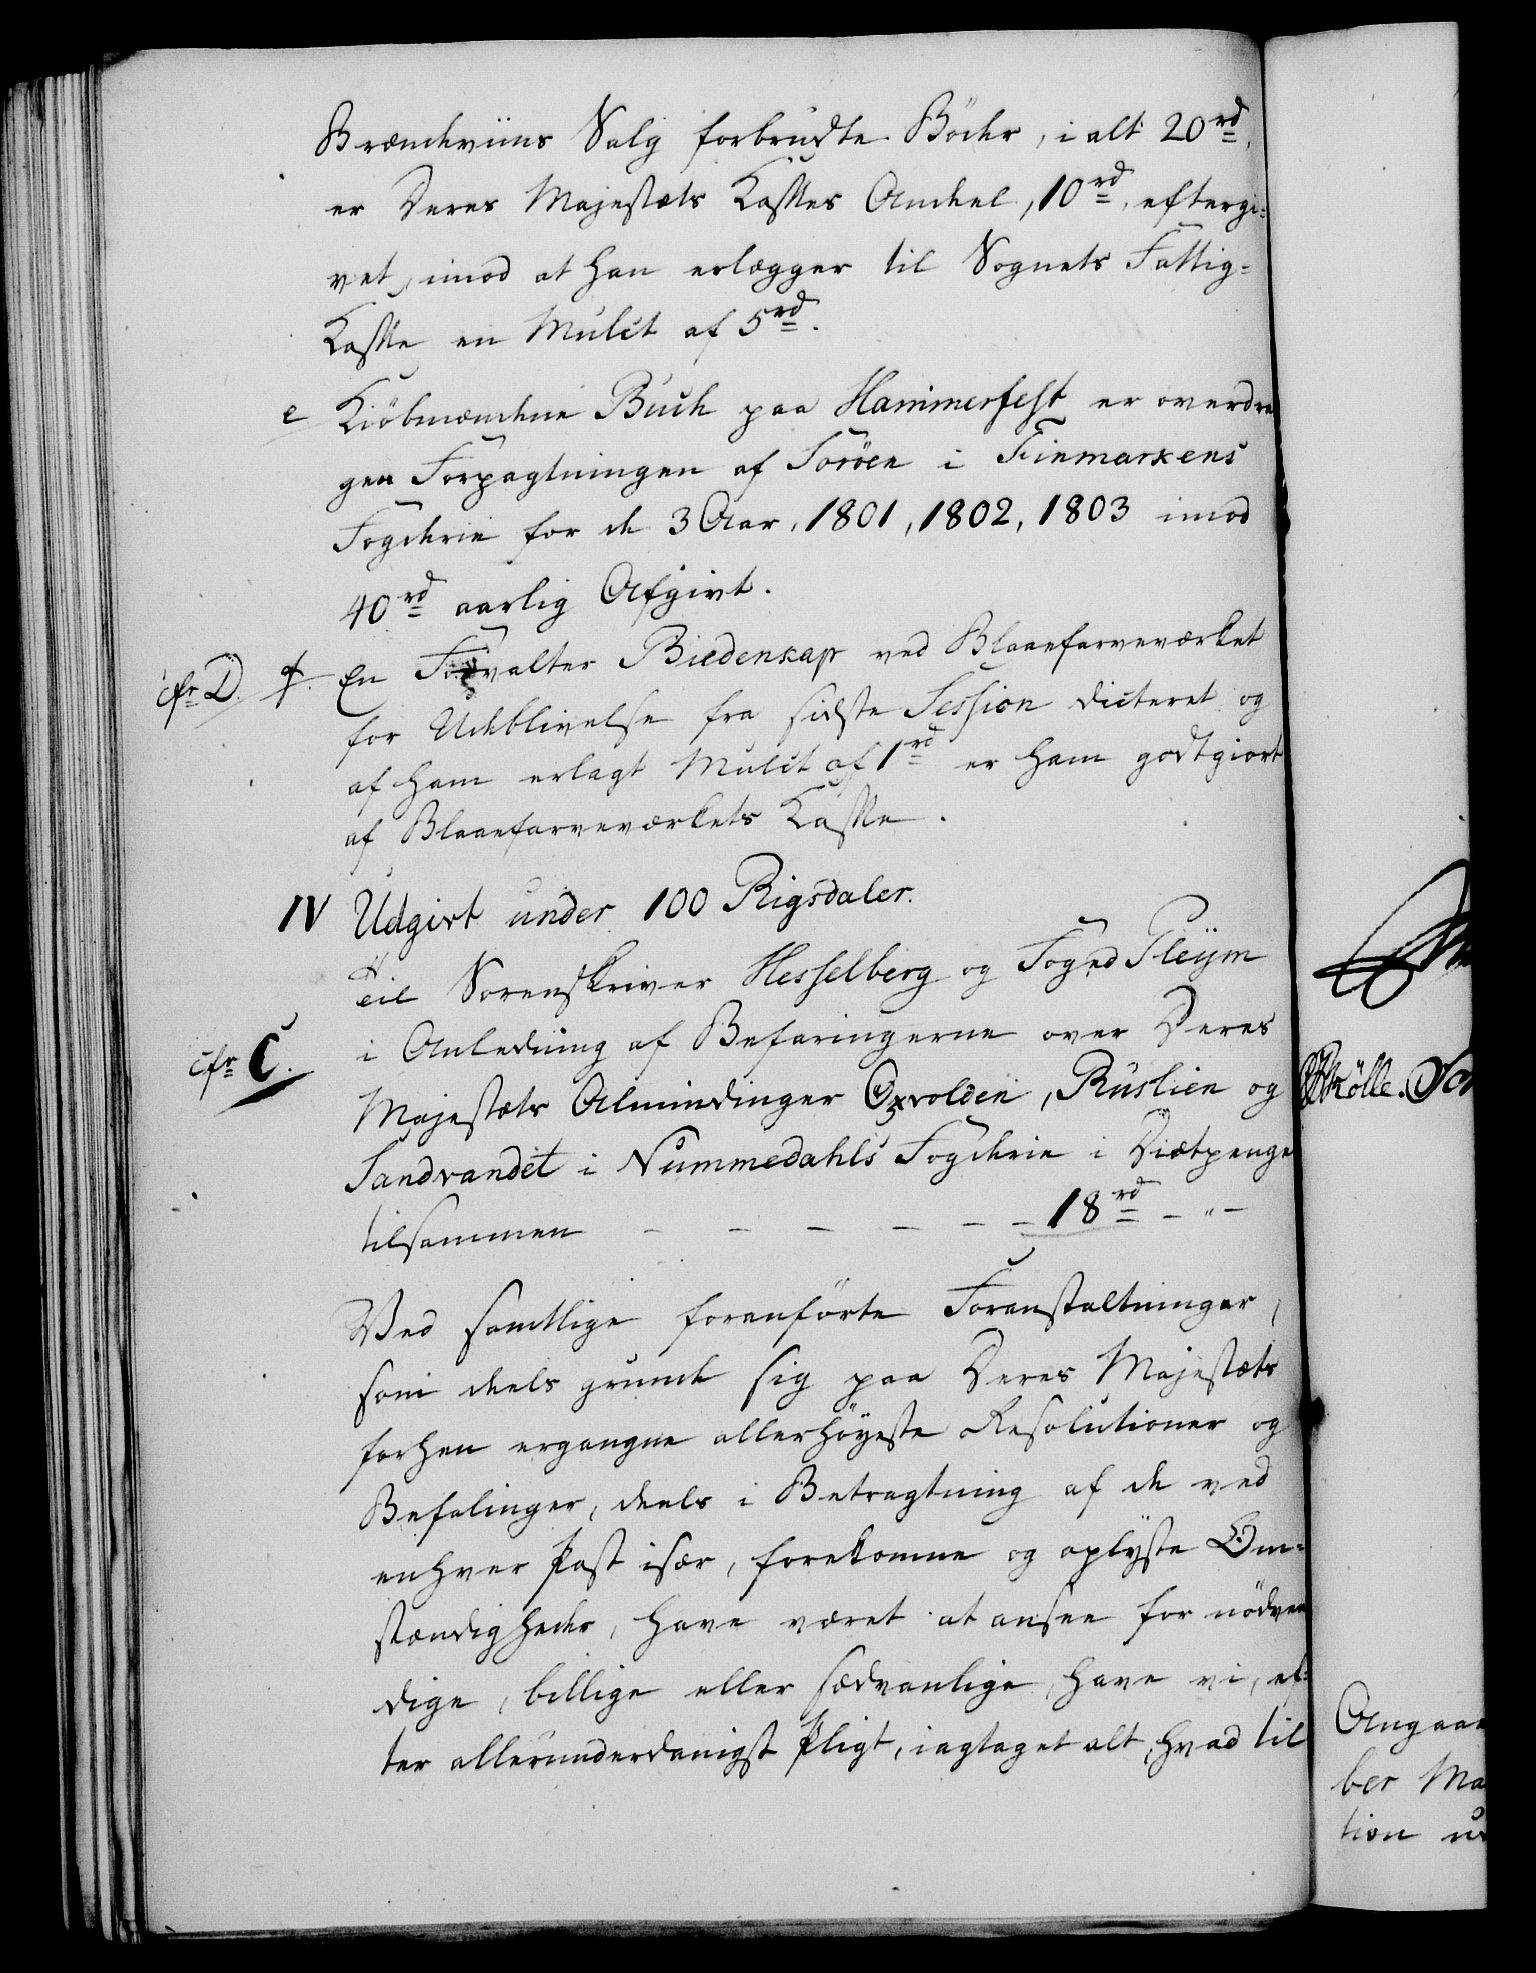 Brændeviins Salg forbrudte Böder, i alt 20 rd,
er Deres Majestæts Kasses Andeel, 10 rd, eftergi-
vet, imod at han erlægger til Sognets Fattig-
Kasse en Mulct af 5 rd.
e Kiöbmændene Buck paa Hammerfest er overdra
gen Forpagtningen af Soröen i Finmarkens
Fogderie for de 3 Aar, 1801, 1802, 1803 imod
40 rd aarlig Afgivt.
cfr D. f. En Forvalter Biedenkap ved Blaaefarveværket
for Udeblivelse fra sidste Session dicteret og
af ham erlagt Mulct af 1 rd er ham godtgiort
af Blaaefarveværkets Kasse.
IV Udgivt under 100 Rigsdaler.
Til Sorenskriver Hesselberg og Foged Pleÿm
cfr C. i Anledning af Befaringerne over Deres
Majestæts Almindinger Oxvolden, Ruslien og
Sandvandet i Nummedahls Fogderie i Diætpenge
tilsammen – – – – – – 18 rd – " –
Ved samtlige foranförte Foranstaltninger,
som deels grunde sig paa Deres Majestæts
forhen ergangne allerhöyeste Resolutioner og
Befalinger, deels i Betragtning af de ved
enhver Post især, forekomne og oplyste Om-
stændigheder, have været at ansee for nödven
dige, billige eller sædvanlige, have vi, ef-
ter allerunderdanigst Pligt, iagtaget alt, hvad til
Angaae
ber Ma
tion u